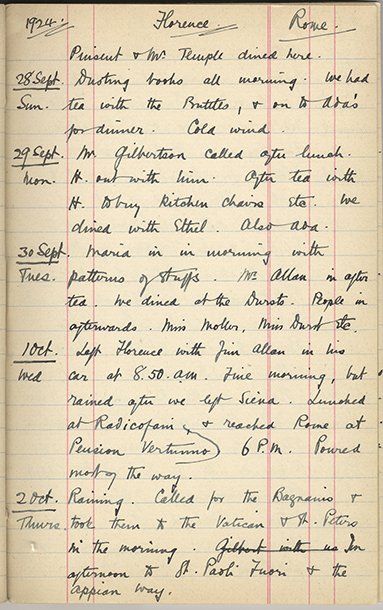 1924. Florence. Rome.
Pinsent & Mr. Temple dined here.
28 Sept. Dusting books all morning. We had
Sun. tea with the Buttles, & on to Ada's
for dinner. Cold wind.
29 Sept. Mr. Gilbertson called after lunch.
Mon. H. out with him. After tea with
H. to buy kitchen chairs etc. We
dined with Ethel. Also Ada.
30 Sept. Maria in in morning with
Tues. patterns of stuffs. Mr. Allan in after
tea. We dined at the Dursts. People in
afterwards. Miss Miss Durst etc.
1 Oct. Left Florence with Jim Allan in his
Wed car at 8.50 a.m. Fine morning, but
rained after we left Siena. Lunched
at Radicofani, & reached Rome at
Pension 6 P.M. Poured
most of the way.
2 Oct. Raining. Called for the &
Thurs. took them to the Vatican & St. Peters
in the morning. Gilbert with us In
afternoon to St. Paoli Fuori & the
Appian Way.